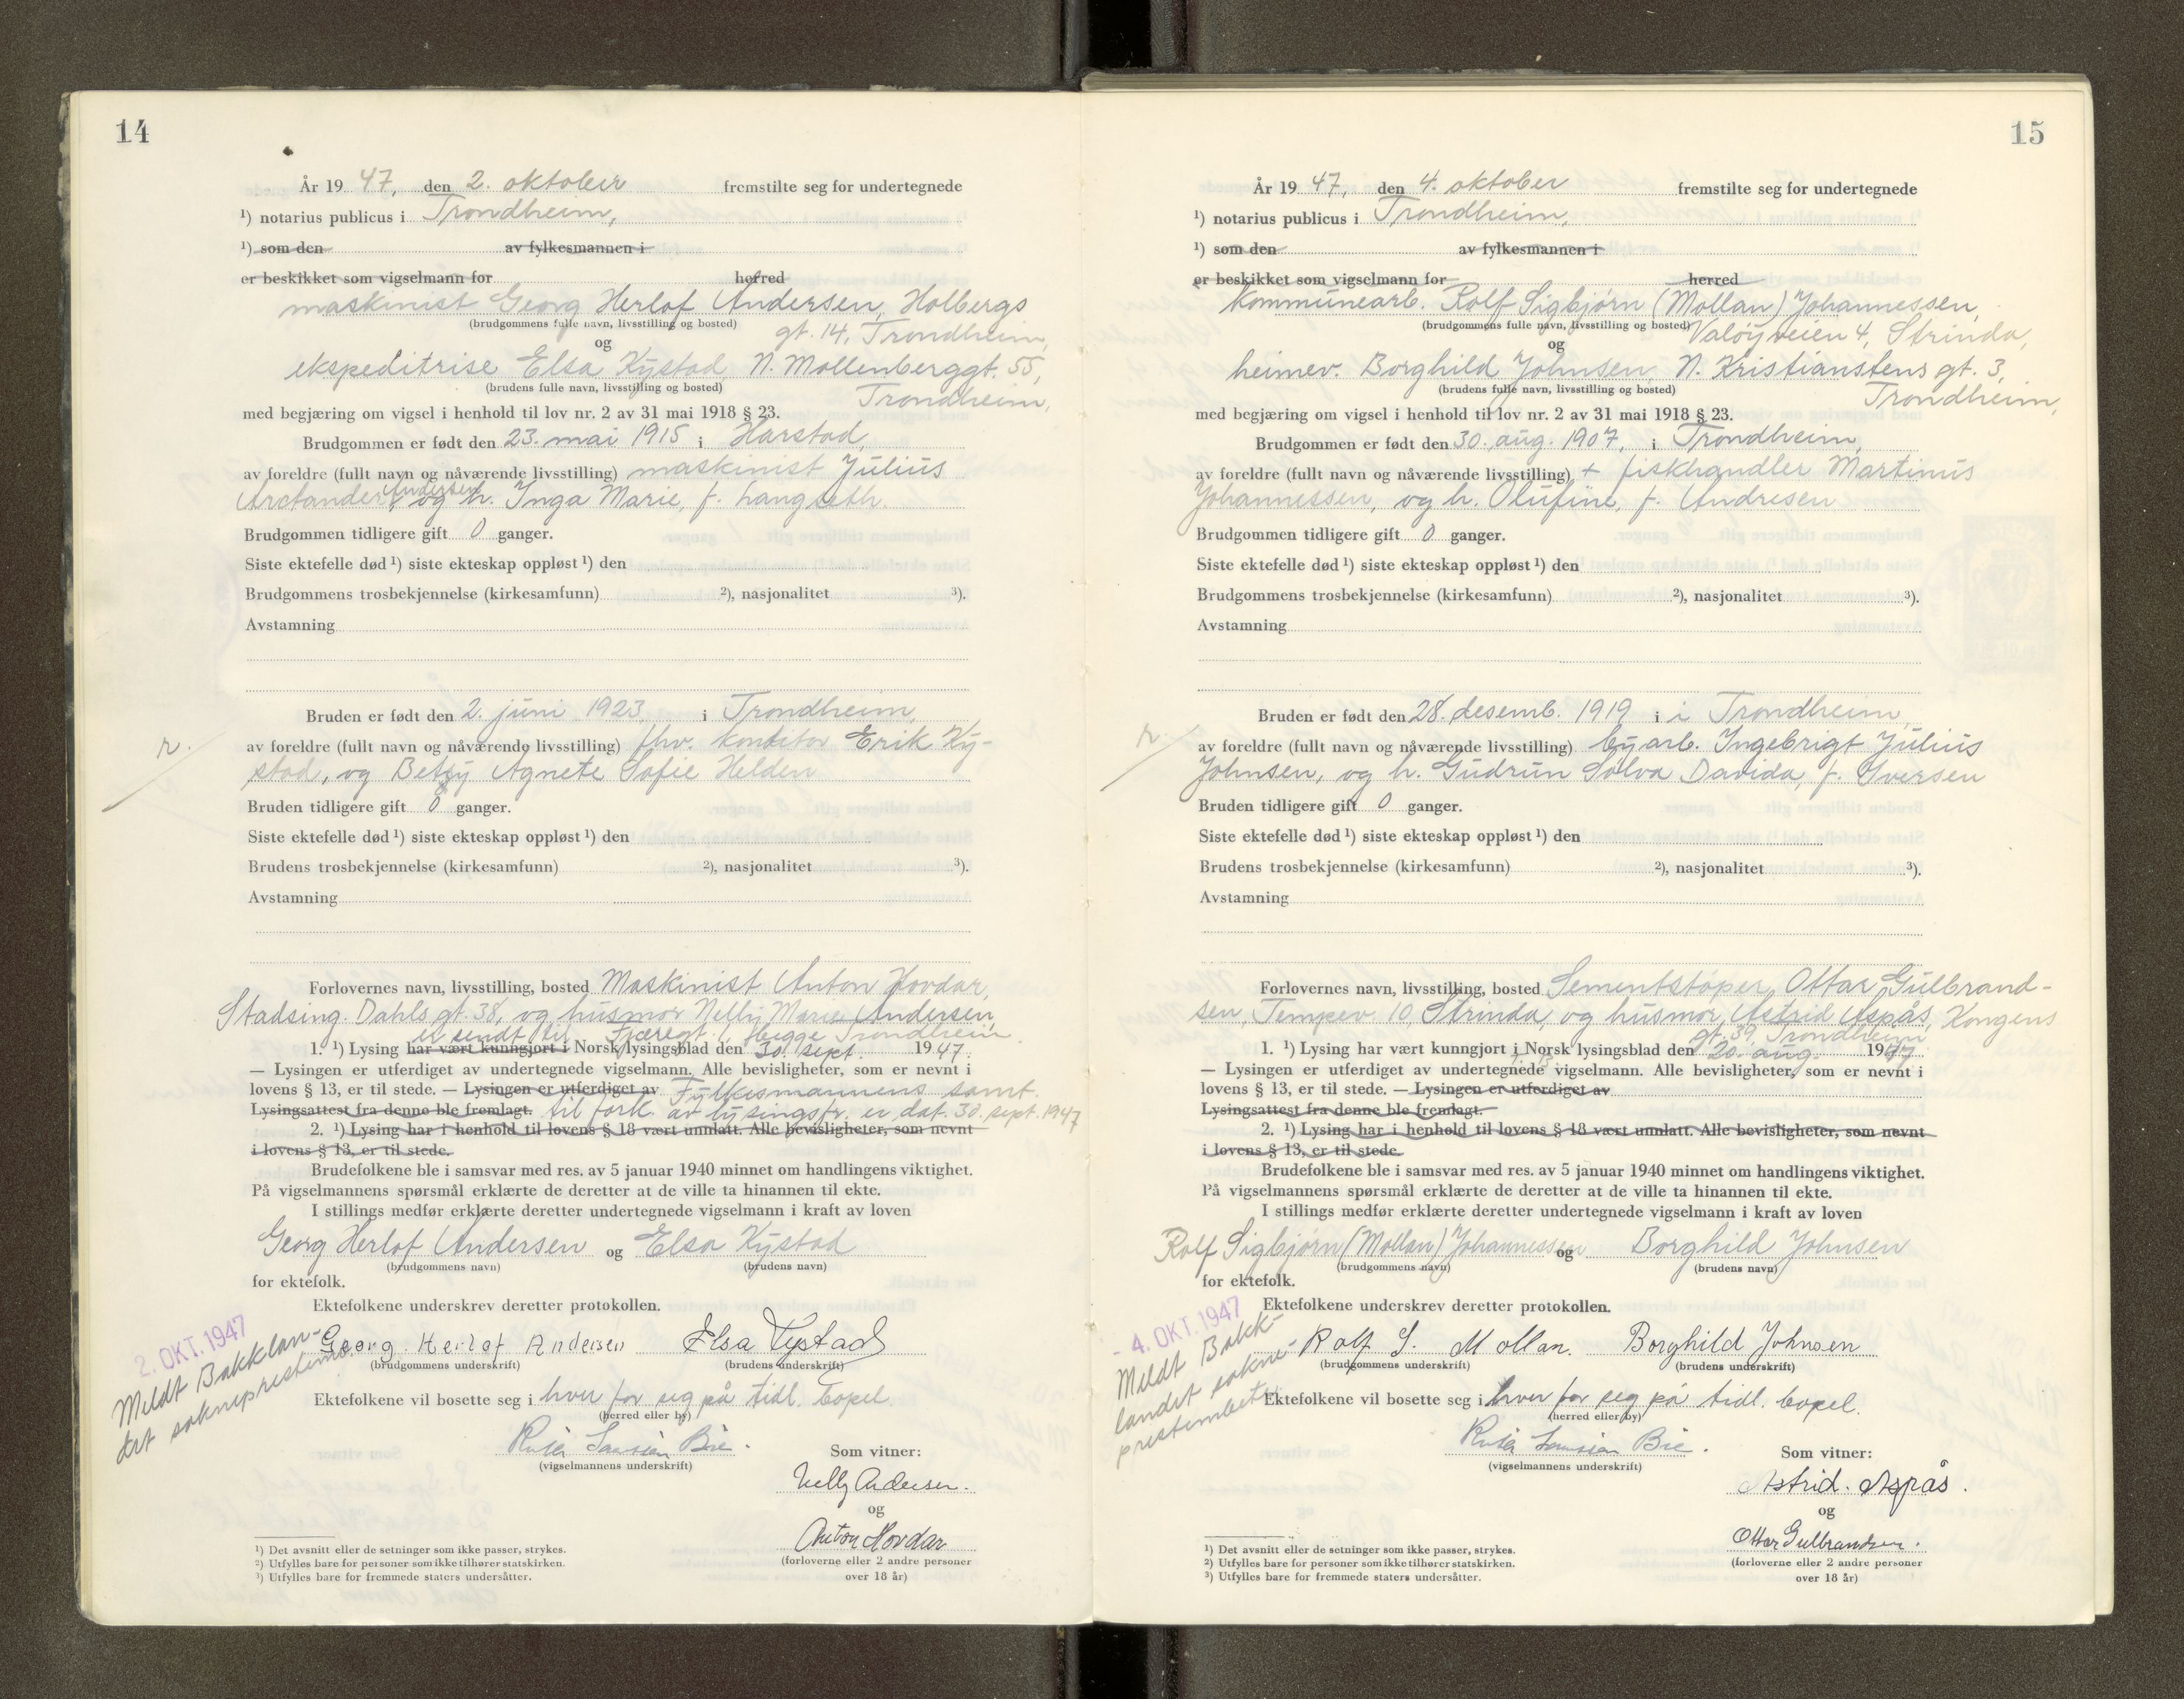 14
År 1947, den 2. oktober fremstilte seg for undertegnede
¹) notarius publicus i Trondheim,
¹) som den av fylkesmannen i
er beskikket som vigselmann for herred
maskinist Georg Herlof Andersen, Holbergs
(brudgommens fulle navn, livsstilling og bosted) gt. 14, Trondheim,
og
ekspeditrise Elsa Kystad, N. Møllenberggt. 55,
(brudens fulle navn, livsstilling og bosted) Trondheim,
med begjæring om vigsel i henhold til lov nr. 2 av 31 mai 1918 § 23.
Brudgommen er født den 23. mai 1915 i Harstad,
av foreldre (fullt navn og nåværende livsstilling) maskinist Julius
Arctander Andersen, og h. Inga Marie, f. Langseth.
Brudgommen tidligere gift 0 ganger.
Siste ektefelle død ¹) siste ekteskap oppløst ¹) den
Brudgommens trosbekjennelse (kirkesamfunn) ²), nasjonalitet ³).
Avstamning
Bruden er født den 2. juni 1923 i Trondheim,
r.
av foreldre (fullt navn og nåværende livsstilling) fhv. konditor Erik Ky-
stad, og Betsy Agnete Sofie Helden
Bruden tidligere gift 0 ganger.
Siste ektefelle død ¹) siste ekteskap oppløst ¹) den
Brudens trosbekjennelse (kirkesamfunn) ²), nasjonalitet ³).
Avstamning
Forlovernes navn, livsstilling, bosted Maskinist Anton Hovdar,
Stadsing. Dahls gt. 38, og husmor Nelly Marie Andersen,
er sendt til Fjæregt. 1, Trondheim
1. ¹) Lysing har vært kunngjort i Norsk lysingsblad den 30. sept. 1947.
— Lysingen er utferdiget av undertegnede vigselmann. Alle bevisligheter, som er nevnt i
lovens § 13, er til stede. — Lysingen er utferdiget av Fylkesmannens samt.
Lysingsattest fra denne ble fremlagt. til fork. av lysingsfr. er dat. 30. sept. 1947
2. ¹) Lysing har i henhold til lovens § 18 vært unnlatt. Alle bevisligheter, som nevnt
i lovens § 13, er til stede.
Brudefolkene ble i samsvar med res. av 5 januar 1940 minnet om handlingens viktighet.
På vigselmannens spørsmål erklærte de deretter at de ville ta hinannen til ekte.
I stillings medfør erklærte deretter undertegnede vigselmann i kraft av loven
Georg Herlof Andersen og Elsa Kystad
(brudgommens navn) (brudens navn)
for ektefolk.
Ektefolkene underskrev deretter protokollen.
2. OKT. 1947
Georg Herlof Andersen Elsa Kystad
(brudgommens underskrift) (brudens underskrift)
Meldt Bakklan-
det sokneprestemb.
Ektefolkene vil bosette seg i hver for seg på tidl. bopel.
(herred eller by)
(vigselmannens underskrift) Som vitner:
Nelly Andersen.
og
Anton Hovdar
(forloverne eller 2 andre personer
over 18 år)
¹) Det avsnitt eller de setninger som ikke passer, strykes.
²) Utfylles bare for personer som ikke tilhører statskirken.
³) Utfylles bare for fremmede staters undersåtter.
15
År 1947, den 4. oktober fremstilte seg for undertegnede
¹) notarius publicus i Trondheim,
¹) som den av fylkesmannen i
er beskikket som vigselmann for herred
Kommunearb. Rolf Sigbjørn (Mollan) Johannessen,
(brudgommens fulle navn, livsstilling og bosted) Valøyveien 4, Strinda,
og
heimev. Borghild Johnsen, N. Kristianstens gt. 3,
(brudens fulle navn, livsstilling og bosted) Trondheim,
med begjæring om vigsel i henhold til lov nr. 2 av 31 mai 1918 § 23.
Brudgommen er født den 30. aug. 1907, i Trondheim,
av foreldre (fullt navn og nåværende livsstilling) + fiskhandler Martinus
Johannessen, og h. Olufine, f. Andresen
Brudgommen tidligere gift 0 ganger.
Siste ektefelle død ¹) siste ekteskap oppløst ¹) den
Brudgommens trosbekjennelse (kirkesamfunn) ²), nasjonalitet ³).
Avstamning
Bruden er født den 28. desemb. 1919 i i Trondheim,
r.
av foreldre (fullt navn og nåværende livsstilling) byarb. Ingebrigt Julius
Johnsen, og h. Gudrun Solva Davida, f. Iversen
Bruden tidligere gift 0 ganger.
Siste ektefelle død ¹) siste ekteskap oppløst ¹) den
Brudens trosbekjennelse (kirkesamfunn) ²), nasjonalitet ³).
Avstamning
Forlovernes navn, livsstilling, bosted Sementstøper Ottar Gulbrand-
sen, Tempev. 10, Strinda, og husmor Astrid Aspås, Kongens
gt. 39, Trondheim
1. ¹) Lysing har vært kunngjort i Norsk lysingsblad den 20. aug. 1947
— Lysingen er utferdiget av undertegnede vigselmann. Alle bevisligheter, som er nevnt i
lovens § 13, er til stede. — Lysingen er utferdiget av
Lysingsattest fra denne ble fremlagt.
2. ¹) Lysing har i henhold til lovens § 18 vært unnlatt. Alle bevisligheter, som nevnt
i lovens § 13, er til stede.
Brudefolkene ble i samsvar med res. av 5 januar 1940 minnet om handlingens viktighet.
På vigselmannens spørsmål erklærte de deretter at de ville ta hinannen til ekte.
I stillings medfør erklærte deretter undertegnede vigselmann i kraft av loven
Rolf Sigbjørn (Mollan) Johannessen og Borghild Johnsen
(brudgommens navn) (brudens navn)
for ektefolk.
Ektefolkene underskrev deretter protokollen.
- 4. OKT. 1947
Rolf S. Mollan. Borghild Johnsen
(brudgommens underskrift) (brudens underskrift)
Meldt Bakk-
landet sokne-
prestembet
Ektefolkene vil bosette seg i hver for seg på tidl. bopel.
(herred eller by)
(vigselmannens underskrift) Som vitner:
Astrid. Aspås.
og
Ottar Gulbrandsen.
(forloverne eller 2 andre personer
over 18 år)
¹) Det avsnitt eller de setninger som ikke passer, strykes.
²) Utfylles bare for personer som ikke tilhører statskirken.
³) Utfylles bare for fremmede staters undersåtter.